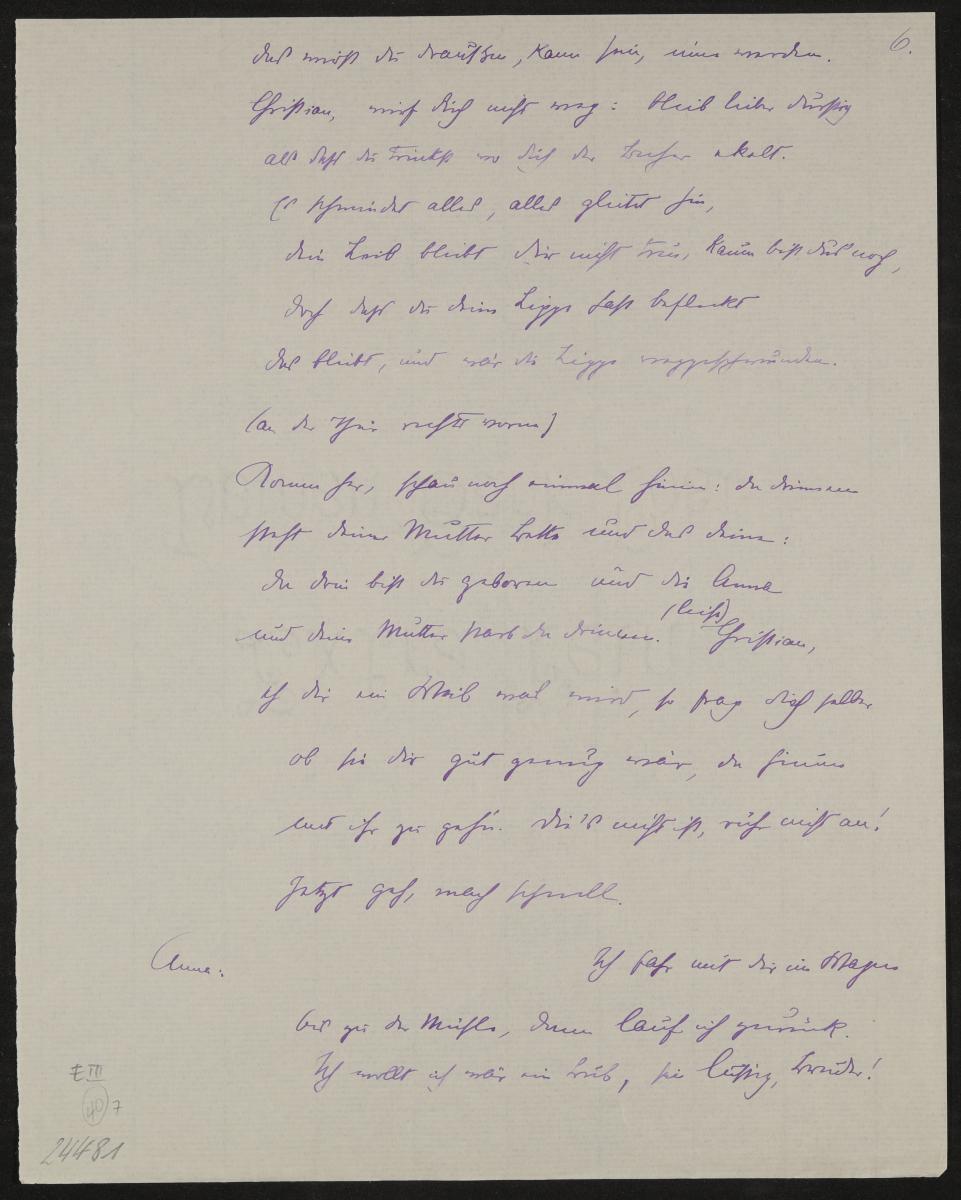 6.
das wirst du draußen, kann sein, inne werden.
Christian, wirf dich nicht weg: bleib lieber durstig
als dass du trinkst wo dich der Becher ekelt.
Es schwindet alles, alles gleitet hin,
dein Leib bleibt dir nicht treu, kaum bist dus noch,
doch dass du deine Lippe hast befleckt
das bleibt, und wär die Lippe weggeschwunden.
(an der Thür rechts vorne)
Komm her, schau noch einmal hinein: da drinnen
steht deiner Mutter Bette und das deine:
da drin bist du geboren und die Anna
und deine Mutter starb da drinnen. (leise) Christian,
ist dir ein Weib mal wird, so frag dich selber
ob sie dir gut genug wär, da hinein
mit ihr zu gehn. Die's nicht ist, rühr nicht an!
Jetzt geh, mach schnell.
Anna: Ich fahr mit dir im Wagen
bis zu der Mühle, dann lauf ich zurück.
Ich wollt ich wär ein Bub, sei lustig, Bruder!
E III
40 7
24481